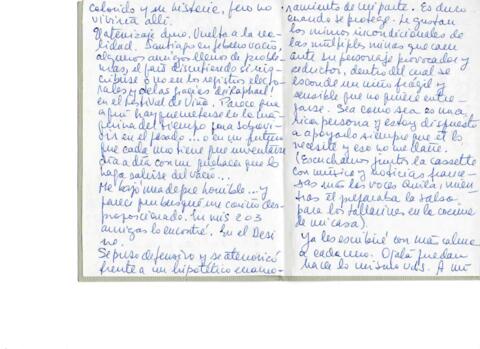 colorido y su histeria, pero no
viviría allí.
Y aterrizaje dijo. Vuelta a la rea-
lidad. Santiago en febrero vacío,
algunos amigos llenos de proble-
mas, el país discutiendo si ins-
cribirse o no en los registros electo-
rales y de las fogies de Raphael!
en el Festival de Viña. Parece que
aquí hay que meterse en la má-
quina del tiempo para sobrevi-
vir en el pasado... o en un futuro
que cada uno tiene que inventarse
día a día con un que lo
haga salirse del vacío...
Me bajó una depre horrible... y
parece que busqué un cariño des-
proporcionado. En mis 203
amigos lo encontré. En el Desi
no.
Se puso defensivo y se aterrorizó
frente a un hipotético enamo-
ramiento de mi parte. Es duro
cuando se protege. Le gustan
los mimos incondicionales de
las múltiples minas que caen
ante su personaje provocador y
seductor, dentro del cual se
esconde un niño frágil y
sensible que no quiere entre-
garse. Sea como sea es una
rica persona y estoy dispuesta
a apoyarlo siempre que él lo
necesite y eso no me dañe.
(Escuchamos juntos la cassette
con música y noticias
más las voces mien-
tras él preparaba la salsa
para los tallarines en la cocina
de mi casa).
Ya les escribiré con más calma
a cada uno. Ojalá puedan
hacer lo mismo uds. A mí